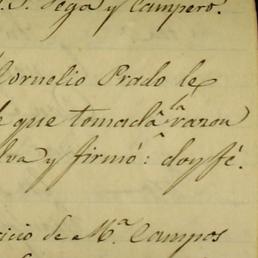 J. Vega y Campero.
Cornelio Prado le
que tomada la razon
lva y firmó: doy fé.
icio de Ma. Campos